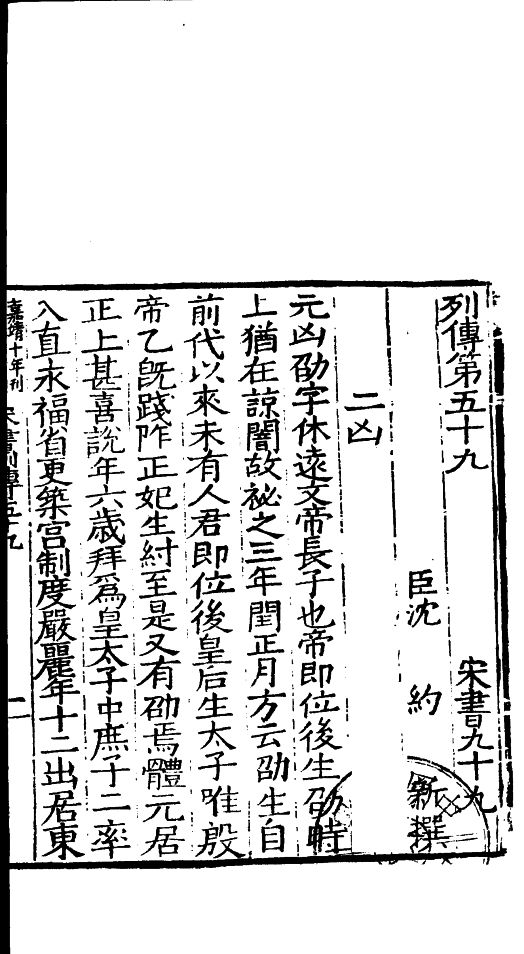 列傳第五十九 宋書九十九
臣沈 約 新撰
二凶
元凶劭字休遠文帝長子也帝即位後生劭時
上猶在諒闇故祕之三年閏正月方云劭生自
前代以來未有人君即位後皇后生太子唯殷
帝乙既踐阼正妃生紂至是又有劭焉體元居
正上甚喜說年六歲拜爲皇太子中庶子二率
入直永福省更築宮制度嚴麗年十二出居東
嘉靖十年刊 宋書列傳五十九